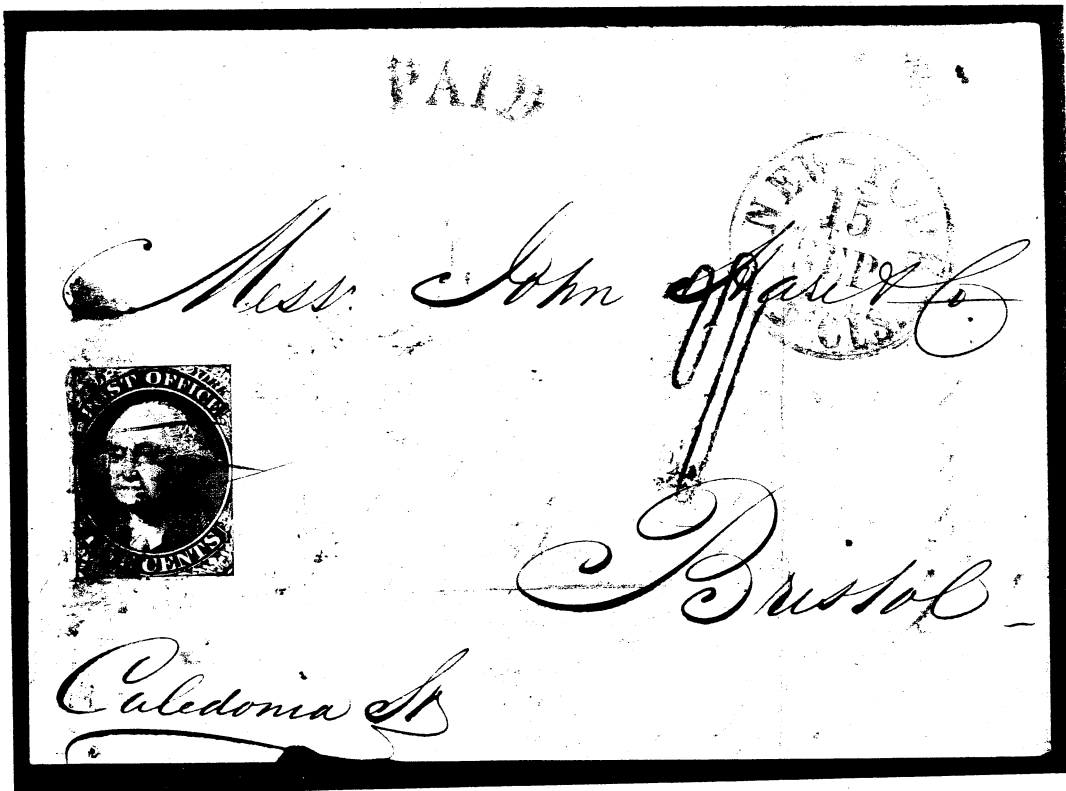 PAID
NEW-YORK
15
SEP
CTS.
Mess. John Hare & Co.
POST OFFICE
CENTS
Bristol
Caledonia St